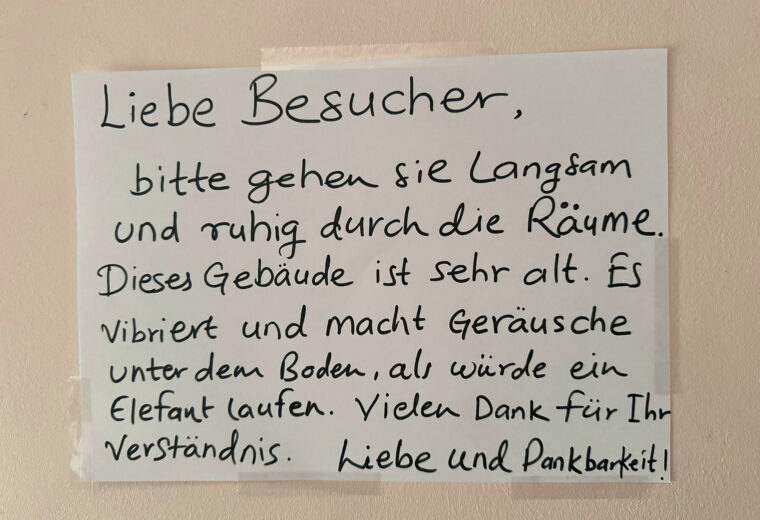 Liebe Besucher,
bitte gehen sie Langsam
und ruhig durch die Räume.
Dieses Gebäude ist sehr alt. Es
vibriert und macht Geräusche
unter dem Boden, als würde ein
Elefant laufen. Vielen Dank für Ihr
Verständnis. Liebe und Dankbarkeit!